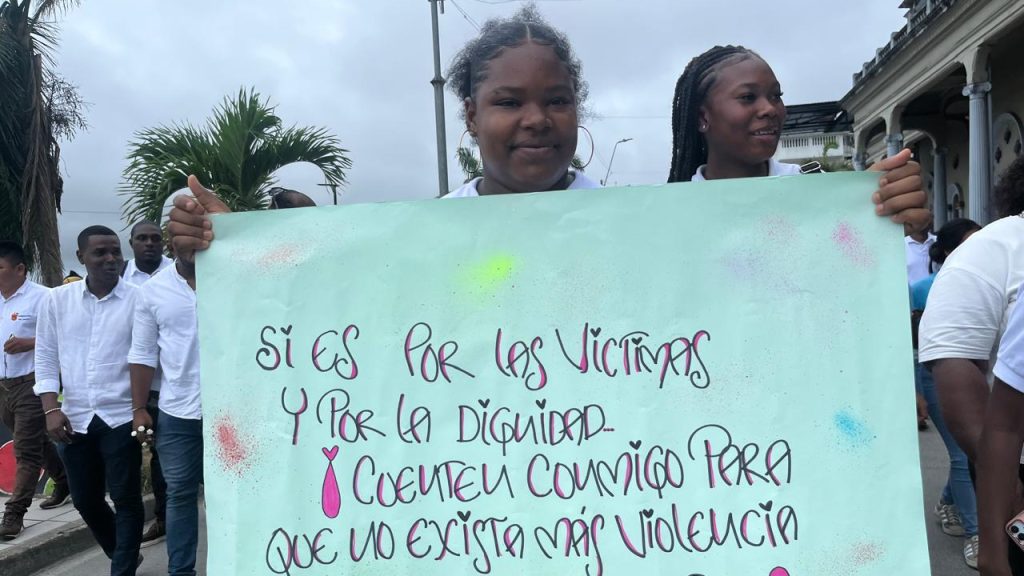 Si es por las víctimas
y por la dignidad...
¡Cuenten conmigo para
que no exista más violencia